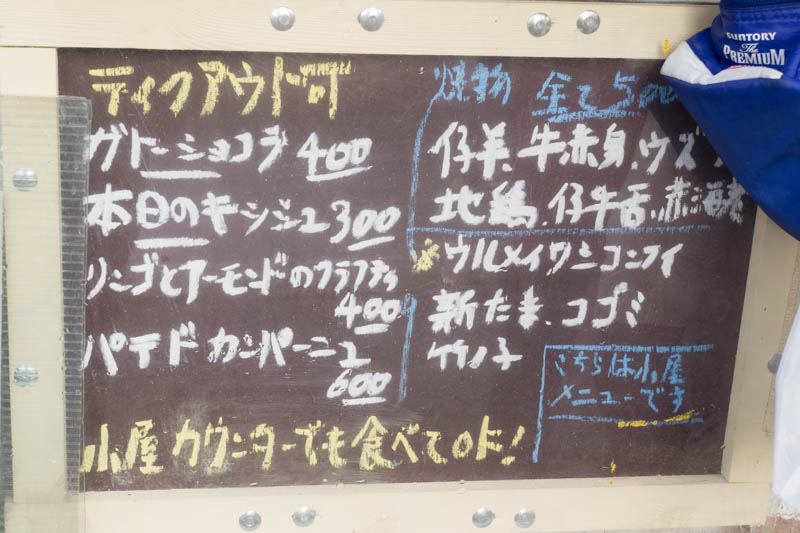 テイクアウト可
ガトーショコラ 400
本日のキッシュ 300
リンゴとアーモンドのクラフティ
400
パテドカンパーニュ
600
小屋カウンターでも食べてOK!
焼物 全て500
仔羊、牛赤身、ウズラ
地鶏、仔牛舌、赤海老
ウルメイワシコンフィ
新たま、コゴミ
タケノ子
こちらは小屋
メニューです
SUNTORY
The
PREMIUM